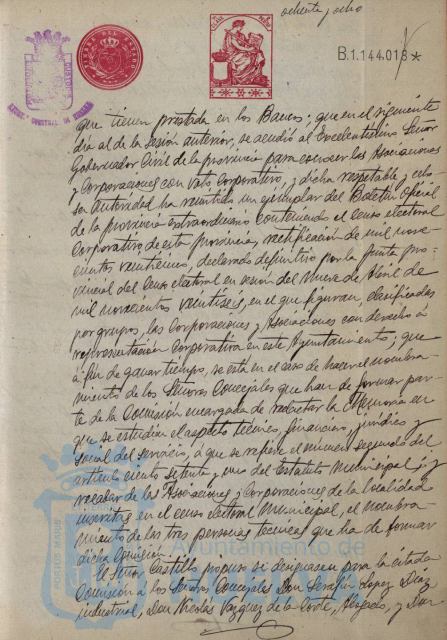 ochenta y ocho
B.1.144.018*
que tienen prestada en los Bancos; que en el siguiente
día al de la sesión anterior, se acudió al Excelentísimo Señor
Gobernador Civil de la provincia para conocer las Asociaciones
y Corporaciones con voto corporativo, y dicha respetable y culta
Autoridad ha remitido un ejemplar del Boletín Oficial
de la provincia extraordinario conteniendo el Censo electoral
Corporativo de esta Provincia, rectificación de mil nove-
cientos veinticinco, declarado definitivo por la Junta pro-
vincial del Censo electoral en sesión del nueve de Abril de
mil novecientos veintiséis, en el que figuran, clasificadas
por grupos, las Corporaciones y Asociaciones con derecho á
representación Corporativa en este Ayuntamiento; que
á fin de ganar tiempo, se está en el caso de hacer el nombra-
miento de los Señores Concejales que han de formar par-
te de la Comisión encargada de redactar la Memoria en
que se estudien el aspecto técnico, financiero, jurídico y
social del servicio, á que se refiere el número segundo del
artículo ciento setenta y uno del Estatuto Municipal; y
recabar de las Asociaciones y Corporaciones de la localidad
inscritas en el censo electoral Municipal, el nombra-
miento de las tres personas técnicas que ha de formar
dicha Comisión.
El Señor Castillo propuso se designasen para la citada
Comisión á los Señores Concejales Don Serafín López Díaz
industrial, Don Nicolás Vázquez de la Corte, Abogado, y Don
Ayuntamiento de